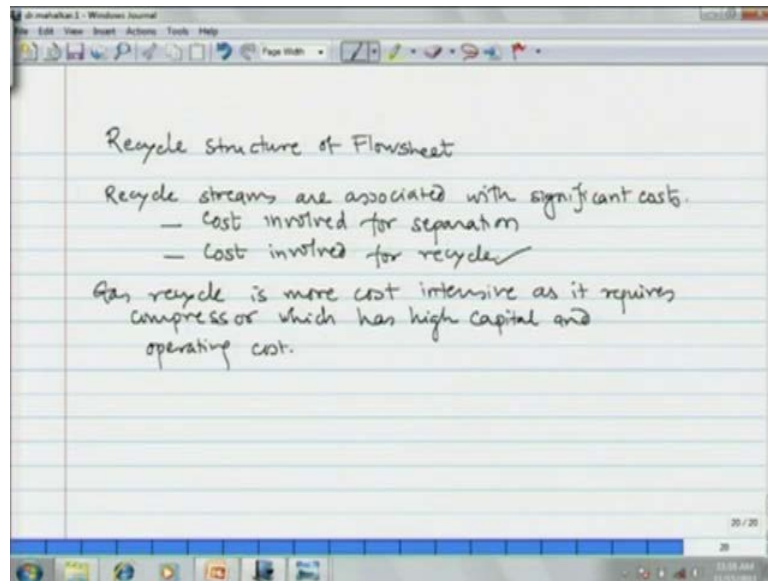 dr.mahalkar.1 - Windows Journal
File Edit View Insert Actions Tools Help
Page Width
Recycle structure of Flowsheet
Recycle streams are associated with significant costs.
— Cost involved for separation
— Cost involved for recycle
Gas recycle is more cost intensive as it requires
compressor which has high capital and
operating cost.
20 / 20
20